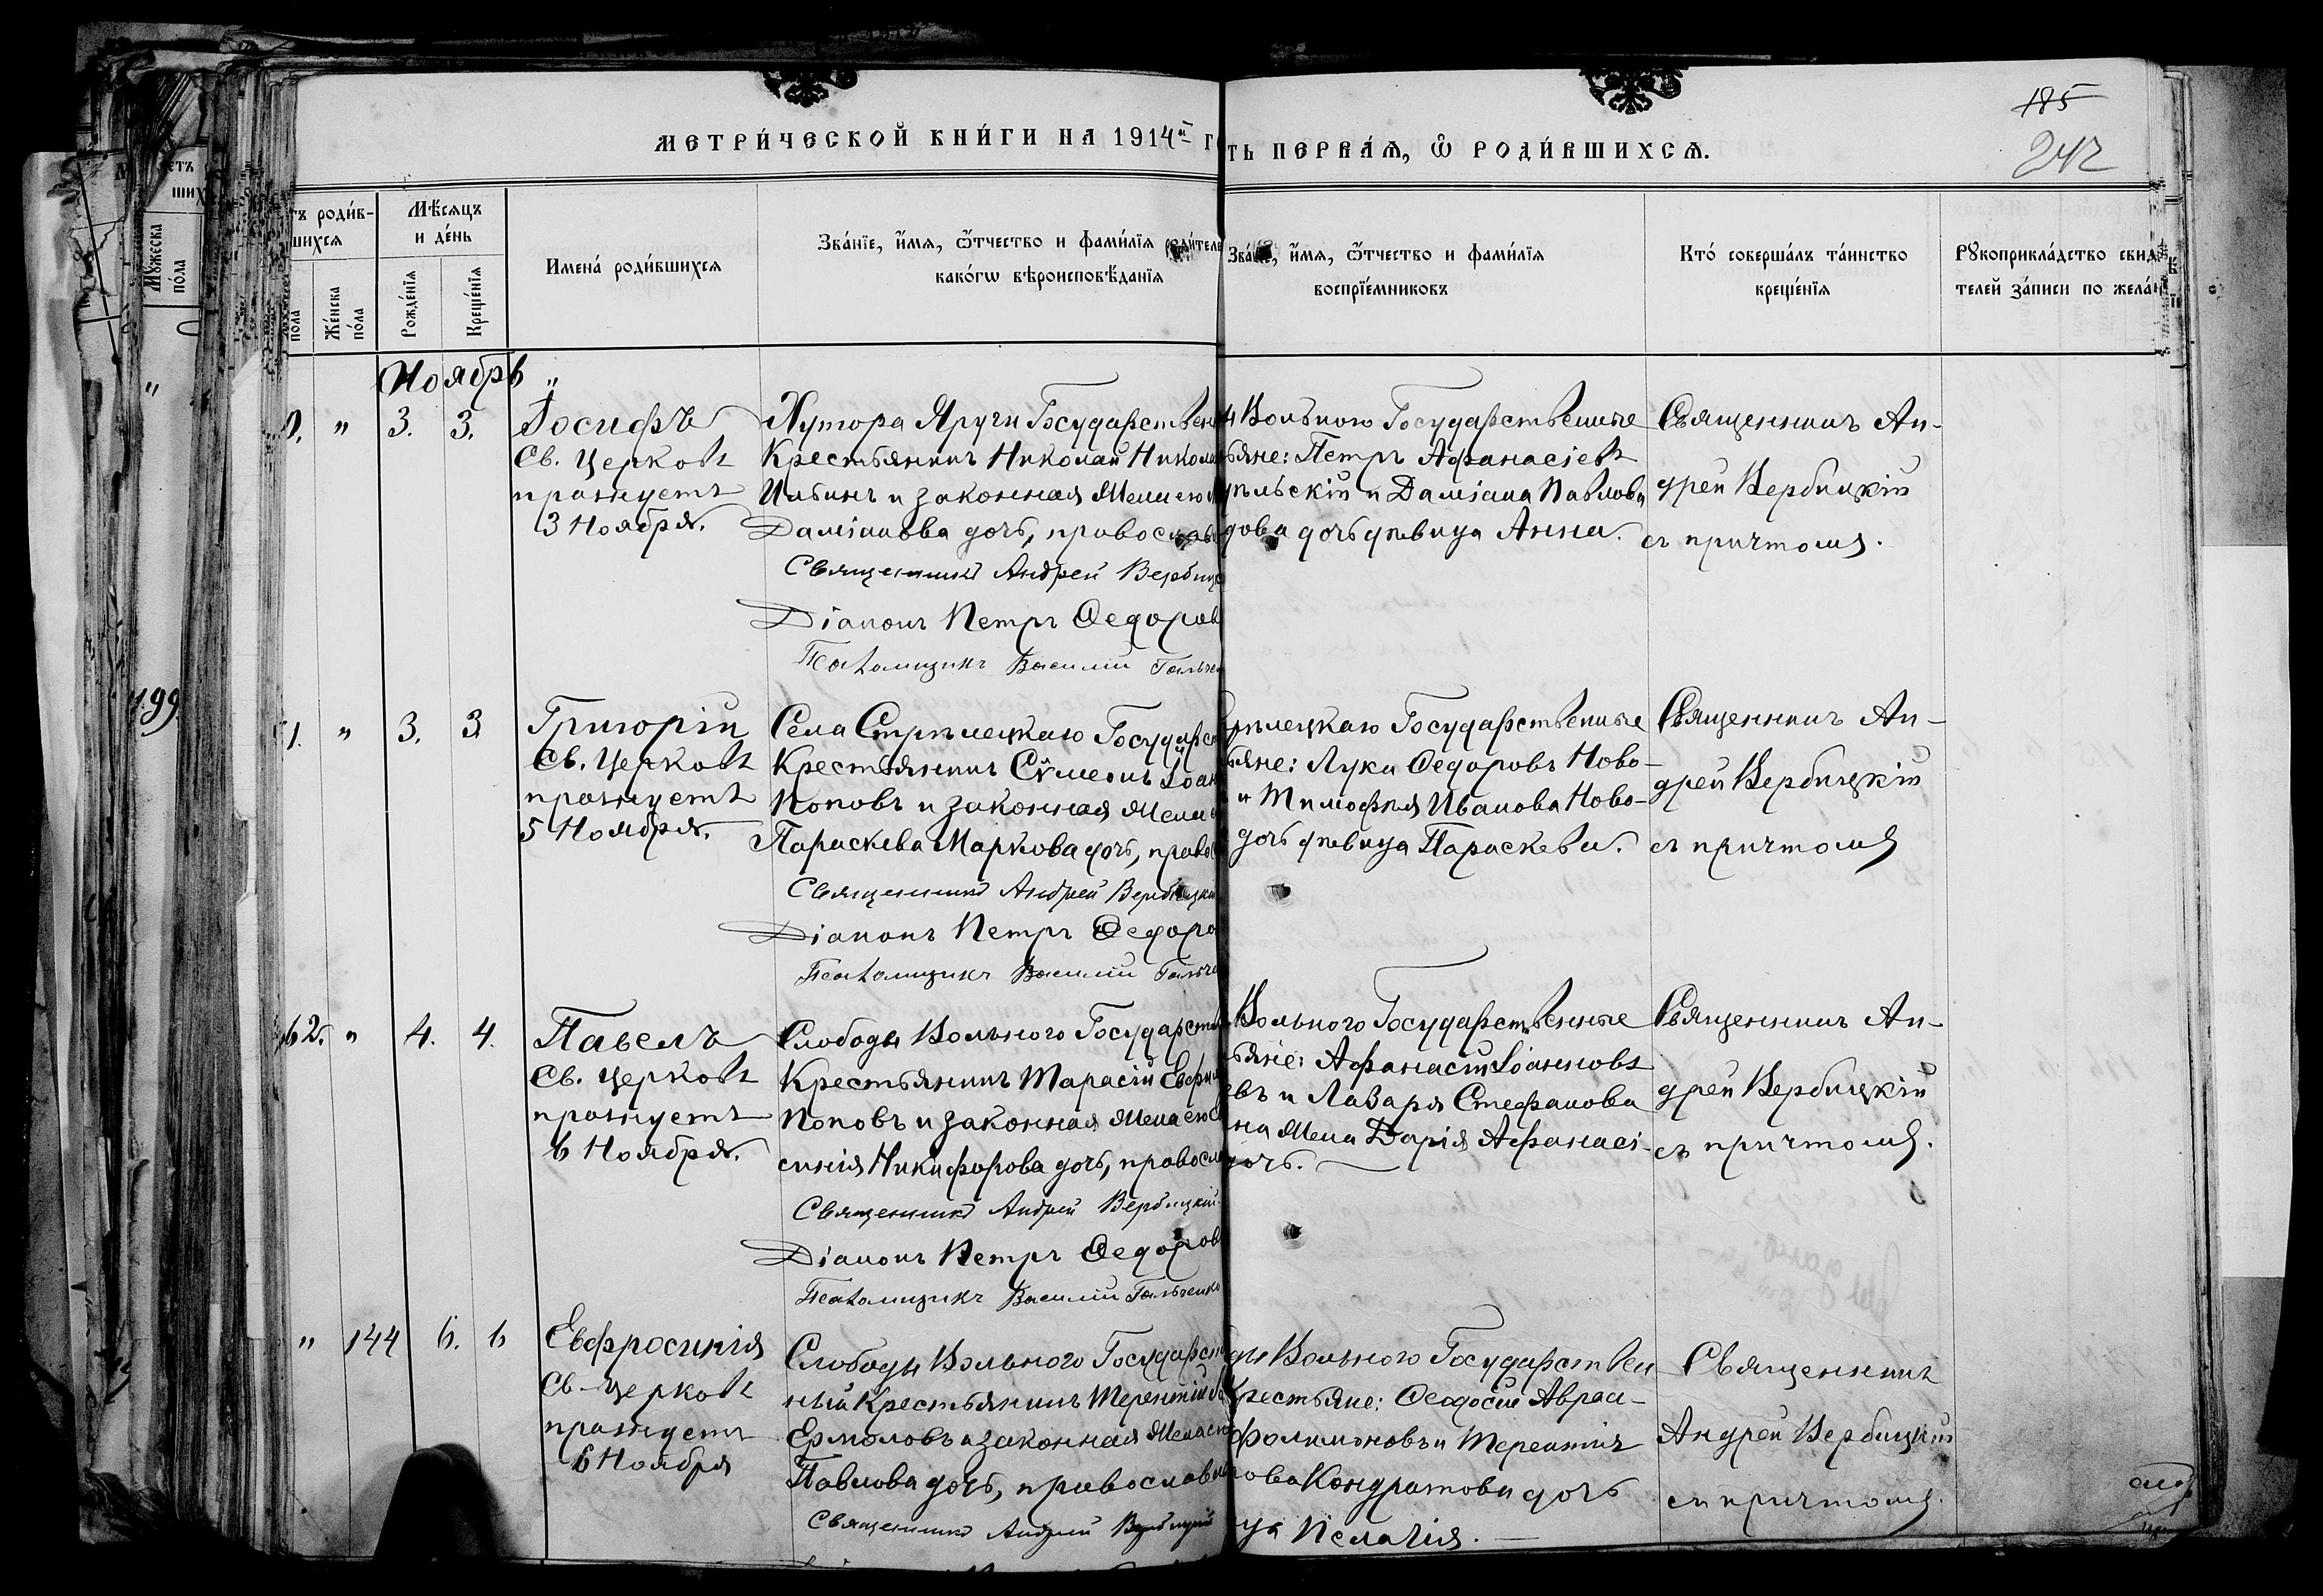 185
242
МЕТРИ́ЧЕСКОЙ КНИ́ГИ НА 1914й Г
ТЬ ПЕРВА́Ѧ, Ѽ РОДИ́ВШИХСѦ.
тъ роди́в-
шихсѧ
Мѣ́сѧцъ
и де́нь
Имена́ роди́вшихсѧ
Зва́нїе, и҆́мѧ, ѻ҆́тчество и фами́лїѧ роди́теле
како́гѡ вѣроисповѣ́данїѧ
Зва́нїе, и҆́мѧ, ѻ҆́тчество и фами́лїѧ
воспрїе́мниковъ
Кто́ соверша́лъ та́инство
креще́нїѧ
Рꙋкоприкла́дство свид
телей за́писи по жела́н
Мꙋ́жеска
по́ла
пола
Же́нска
по́ла
Рожде́нїѧ
Креще́нїѧ
Ноябрь
" 3. 3.
Іосифъ
Св. Церковь
празнуетъ
3 Ноября.
Хутора Яруги Государствен
Крестьянинъ Николай Никола
Ильинъ и законная Жена его
Даміанова дочь, православ
Священникъ Андрей Вербиц
Діаконъ Петръ Ѳедоров
Псаломщикъ Василій Гальчен
Вольного Государственные
ьяне: Петръ Афанасіевъ
ельскій и Даміана Павлова
дова дочь дѣвица Анна.
Священникъ Ан-
дрей Вербицкій
съ причтомъ.
199
1. " 3. 3
Григорій
Св. Церковь
празнуетъ
5 Ноября.
Села Стрѣлецкаго Государст
Крестьянинъ Сѵмеонъ Іоан
Поповъ и законная Жена
Параскева Маркова дочь, право
Священникъ Андрей Вербицкі
Діаконъ Петръ Ѳедоро
Псаломщикъ Василій Гальче
рѣлецкаго Государственные
ьяне: Лука Ѳедоровъ Ново-
и Тимофея Иванова Ново-
дочь дѣвица Параскева.
Священникъ Ан-
дрей Вербицкій
съ причтомъ
62. " 4. 4.
Павелъ
Св. Церковь
празнуетъ
6 Ноября.
Слободы Вольного Государств
Крестьянинъ Тарасій Евфи
Поповъ и законная Жена его
синія Никифорова дочь, правосла
Священникъ Андрей Вербицкій
Діаконъ Петръ Ѳедоров
Псаломщикъ Василій Гальченко
Вольного Государственные
ьяне: Афанасій Іоанновъ
евъ и Лазаря Стефанова
на Жена Дарія Афанасі-
дочь.
Священникъ Ан-
дрей Вербицкій
съ причтомъ.
" 144 6. 6
Евфросинія
Св. Церковь
празнуетъ
6 Ноября
Слободы Вольного Государст
ный Крестьянинъ Терентій
Ермоловъ и законная Жена его
Павлова дочь, православн
Священникъ Андрей Вербицкій
ды Вольного Государствен
Крестьяне: Ѳеодосій Авраа-
Фолимоновъ и Терентія
рова Кондратова дочь
ца Пелагія.
Священникъ
Андрей Вербицкій
съ причтомъ.